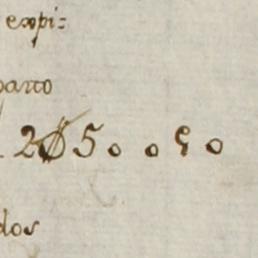 expi=
parto
205 o . o 9 o
dos